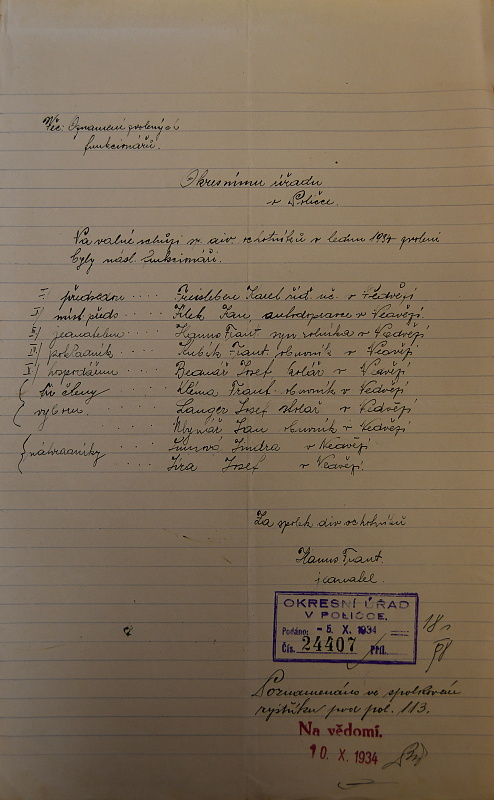 Věc: Oznamení zvolených
funkcionářů.
Okresnímu úřadu
v Poličce.
Na valné schůzi sp. div. ochotníků v lednu 1934 zvoleni
byly násl. funkcionáři.
I/ předsedou . . . . Treisleben Karel říd. uč. v Nedvězí
II/ míst. předs. . . . Flek Jan, autodopravce v Nedvězí.
III/ jednatelem . . . Hanus Frant. syn rolníka v Nedvězí
IV/ pokladník . . . Kubík Frant. obuvník v Nedvězí
V/ hospodářem . . . Bednář Josef kolář v Nedvězí
tři členy . . . Klíma Frant. obuvník v Nedvězí
výboru. . . . Langer Josef stolář v Nedvězí
. . . Mlynář Jan obuvník v Nedvězí
náhradníky . . . Jindra v Nedvězí
. . . Jíra Josef v Nedvězí.
Za spolek div. ochotníků
Hanus Frant.
jednatel.
OKRESNÍ ÚŘAD
V POLIČCE.
Podáno: - 5. X. 1934
Čís. 24407 Příl.
Poznamenáno ve spolkovém
rejstříku pod pol. 113.
Na vědomí.
10. X. 1934